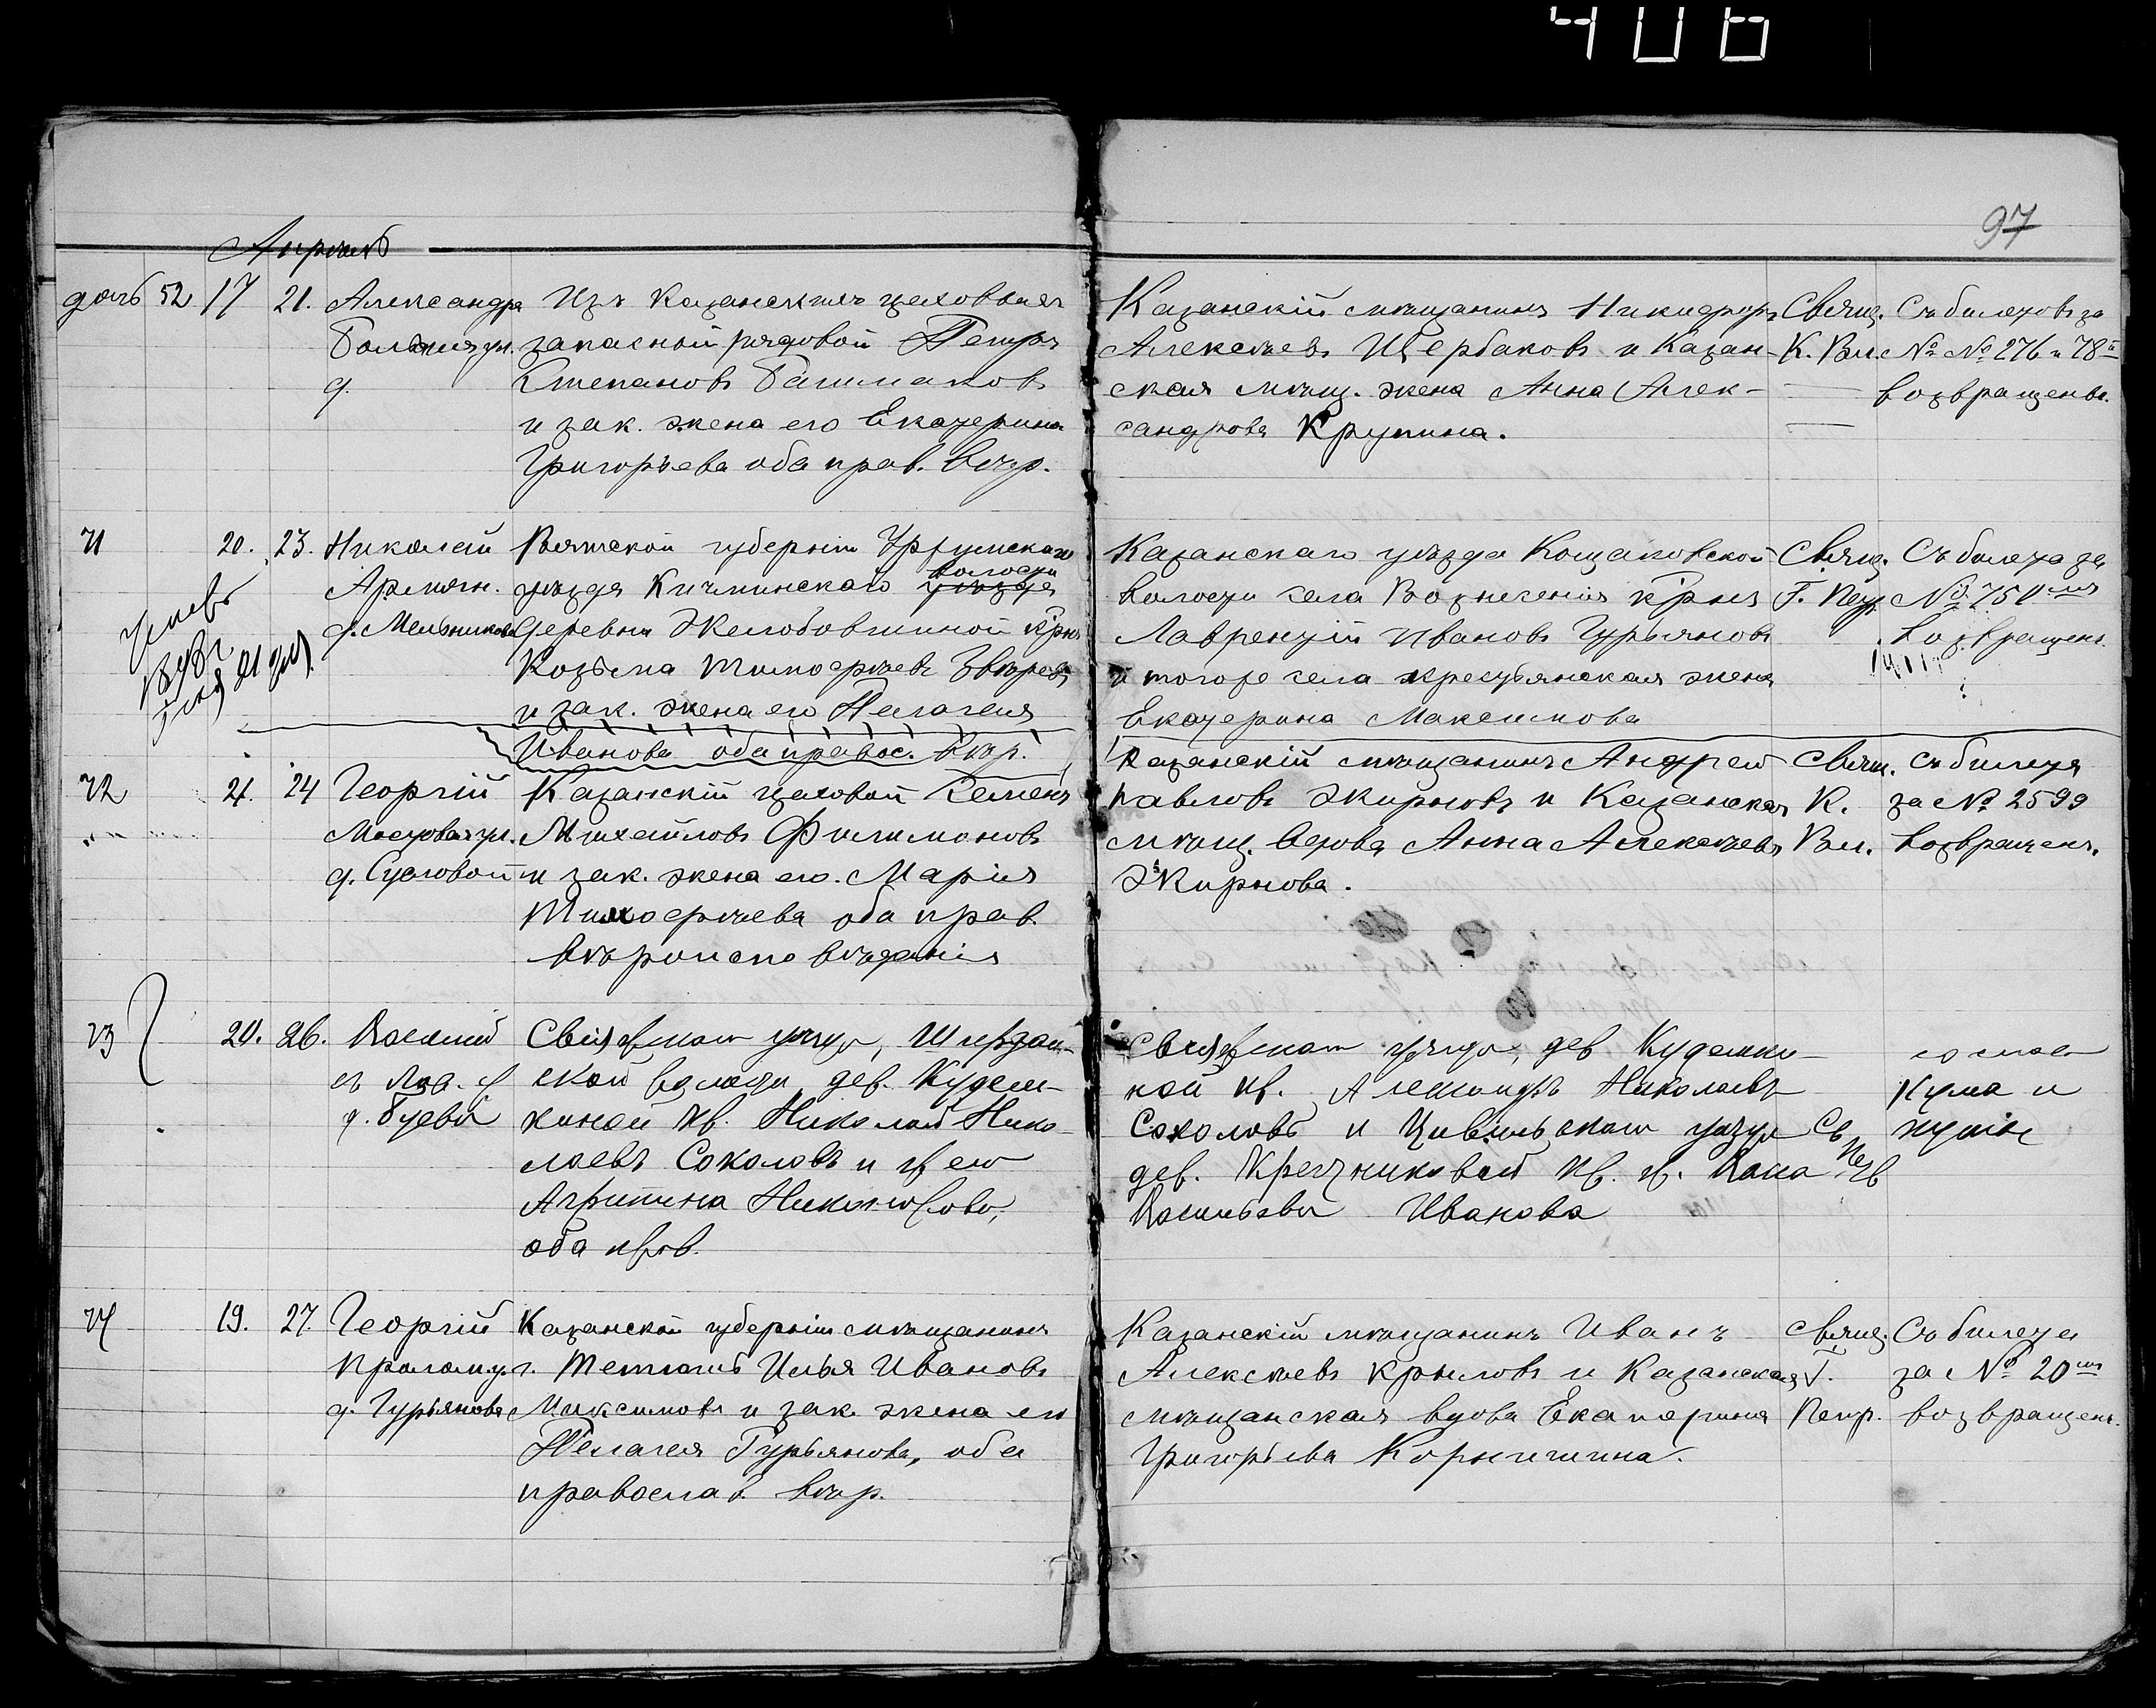 406
97
Апрѣль
дочь 52 17 21. Александра
Большая ул.
д.
Изъ Казанскихъ цеховыхъ
запасной рядовой Петръ
Степановъ Башмаковъ
и зак. жена его Екатерина
Григорьева оба прав. вѣр.
Казанскій мѣщанинъ Никифоръ
Алексѣевъ Щербаковъ и Казан-
ская мѣщ. жена Анна Алек-
сандрова Крупина.
Свящ.
К. Вл.
Съ билетовъ за
№ № 276 и 78
возвращены.
71 20. 23. Николай
Армян.
д. Мельникова
Вятской губерніи Уржумскаго
уѣзда Кичминскаго уѣзда волости
деревни Желобовшиной кр-нъ
Козьма Тимофѣевъ Звѣревъ
и зак. жена его Пелагея
Иванова оба правос. вѣр.
Казанскаго уѣзда Кощаковской
волости села Вознесенія кр-нъ
Лаврентій Ивановъ Гурьяновъ
и тогоже села крестьянская жена
Екатерина Максимова
Свящ.
Г. Петр.
Съ билета за
№ 750
возвращенъ.
72 21. 24 Георгій
Мостовая ул.
д. Сусловой
Казанскій цеховой Семенъ
Михайловъ Филимоновъ
и зак. жена его Марія
Тимофѣева оба прав.
вѣроисповѣданія
Казанскій мѣщанинъ Андрей
Павловъ Жирновъ и Казанская
мѣщ. вдова Анна Алексѣева
Жирнова.
Свящ.
К.
Вл.
Съ билета
за № 2599
возвращенъ.
73 20. 26. Василій
д. Буевой
Свіяжскаго уѣзда, Ширдан-
ской волости дер. Кудеш-
киной кр. Николай Нико-
лаевъ Соколовъ и ж. его
Агрипина Николаева,
оба прав.
Свіяжскаго уѣзда, дер. Кудешки-
ной кр. Александръ Николаевъ
Соколовъ и Цивильскаго уѣзда
дер. Кречниковой кр. ж. Анна
Васильева Иванова
кума и
74 19. 27. Георгій
Пролом. у.
д. Гурьянова
Казанской губерніи мѣщанинъ
г. Тетюшъ Илья Ивановъ
Максимовъ и зак. жена его
Пелагея Гурьянова, оба
православ. вѣр.
Казанскій мѣщанинъ Иванъ
Алексѣевъ Крыловъ и Казанская
мѣщанская вдова Екатерина
Григорьева Корнишина.
Свящ.
Г.
Петр.
Съ билета
за № 20
возвращенъ.